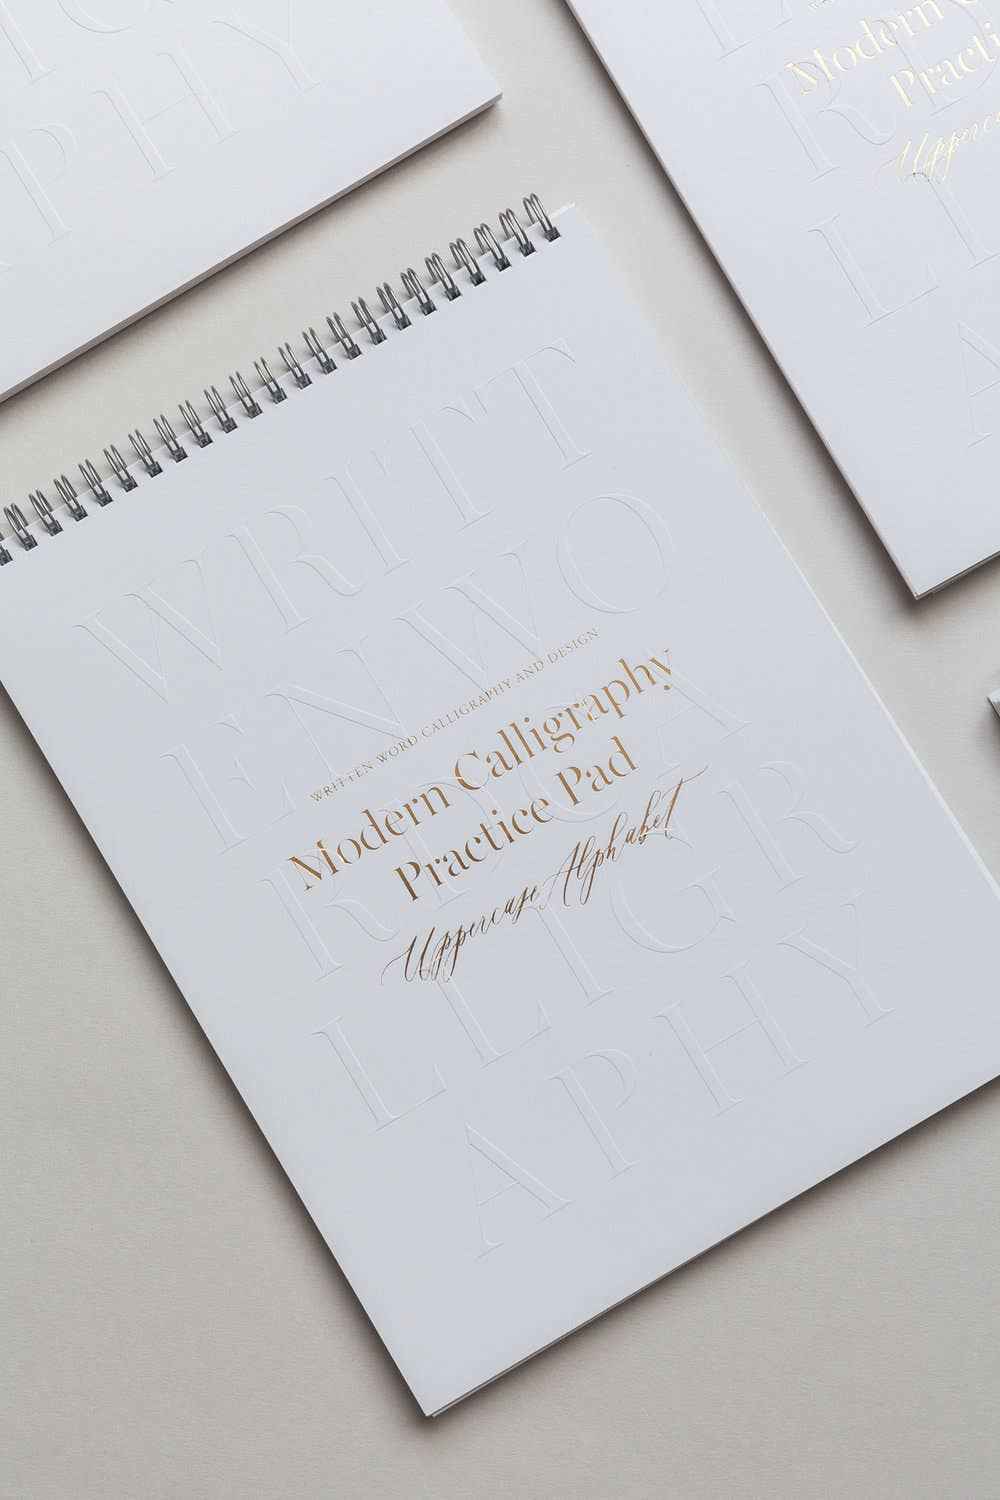 PHY
Modern
Practi
WRITT
ENWO
RDCA
LLIGR
APHY
WRITTEN WORD CALLIGRAPHY AND DESIGN
Modern Calligraphy
Practice Pad
Uppercase Alphabet